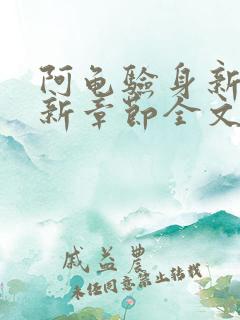 阿龟验身新
新章节全文
戚益农
未经同意禁止转载